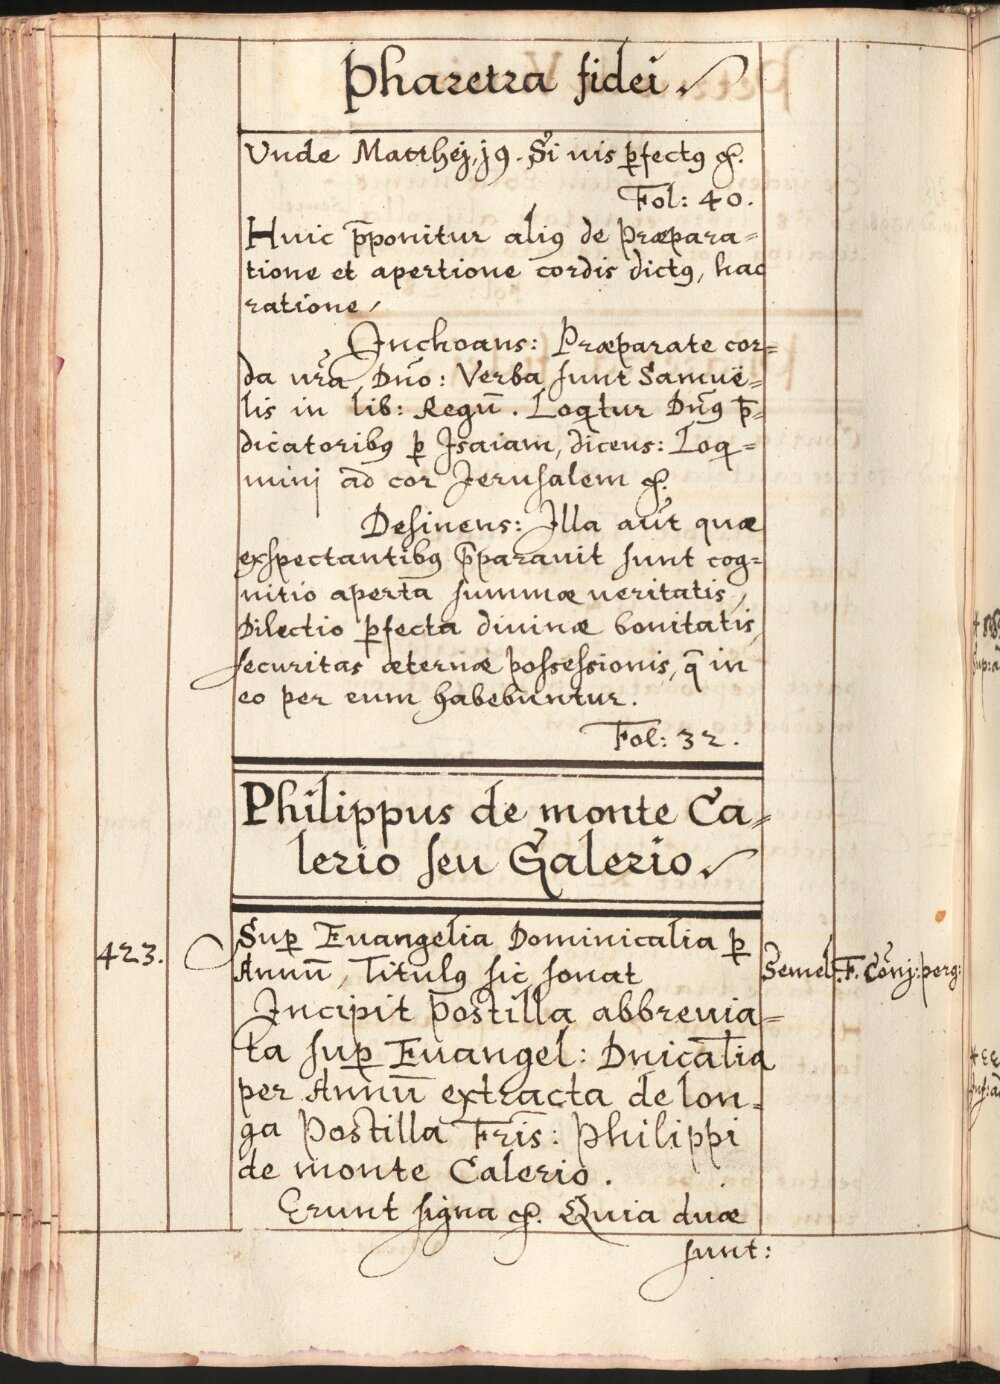 Pharetra fidei.
Vnde Matthej, j9. Si uis ꝑfectꝰ &.
Fol: 40.
Huic p̄ponitur aliꝰ de Præpara=
tione et apertione cordis dictꝰ, hac
ratione,
Inchoans: Præparate cor=
da vr̃a Dn̄o: Verba sunt Samuë=
lis in lib: Regū. Loqtur Dn̄ꝰ p̄=
dicatoribꝰ ꝑ Isaiam, dicens: Loq=
minj ad cor Jerusalem &.
Desinens: Illa aūt quæ
exspectantibꝰ p̄parauit sunt cog=
nitio aperta summæ ueritatis,
Dilectio ꝑfecta diuinæ bonitatis,
securitas æternæ possessionis, q̄ in
eo per eum habebuntur.
Fol: 32.
Philippus de monte Ca=
lerio seu Galerio.
423.
Suꝑ Euangelia Dominicalia ꝑ
Annū, Titulꝰ sic sonat
Semel. F. Conj: perg:
Incipit postilla abbreuia=
ta suꝑ Euangel: Dnicalia
per Annū extracta de lon=
ga Postilla Fr̃is: Philippi
de monte Calerio.
Erunt signa &. Quia duæ
sunt: